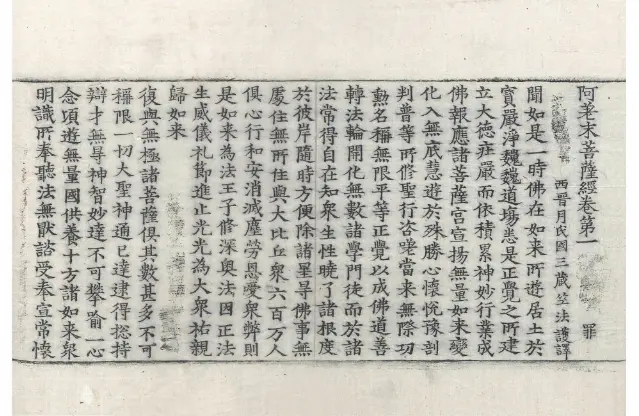 阿差末菩薩經卷第一 罪
西晉月氏國三藏竺法護譯
聞如是一時佛在如来所遊居土於
寳嚴淨巍巍道場悉是正覺之所建
立大徳莊嚴而依積累神妙行業成
佛報應諸菩薩宫宣揚無量如来變
化入無底慧遊於殊勝心懷恱豫剖
判普等所修聖行咨嗟當来無際功
勲名稱無限平等正覺以成佛道善
轉法輪開化無數諸學門徒而於諸
法常得自在知衆生性曉了諸根度
於彼岸隨時方便除諸罣㝵佛事無
處住無所住與大比丘衆六百万人
俱心行和安消滅塵勞恩愛衆弊則
是如来為法王子修深奥法因正法
生威儀礼莭進止光光為大衆祐親
歸如来
復與無極諸菩薩俱其數甚多不可
稱限一切大聖神通已達逮得揔持
辯才無㝵神智妙達不可攀喻一心
念頃遊無量國供養十方諸如来衆
明識所奉聽法無猒諮受奉宣常懷